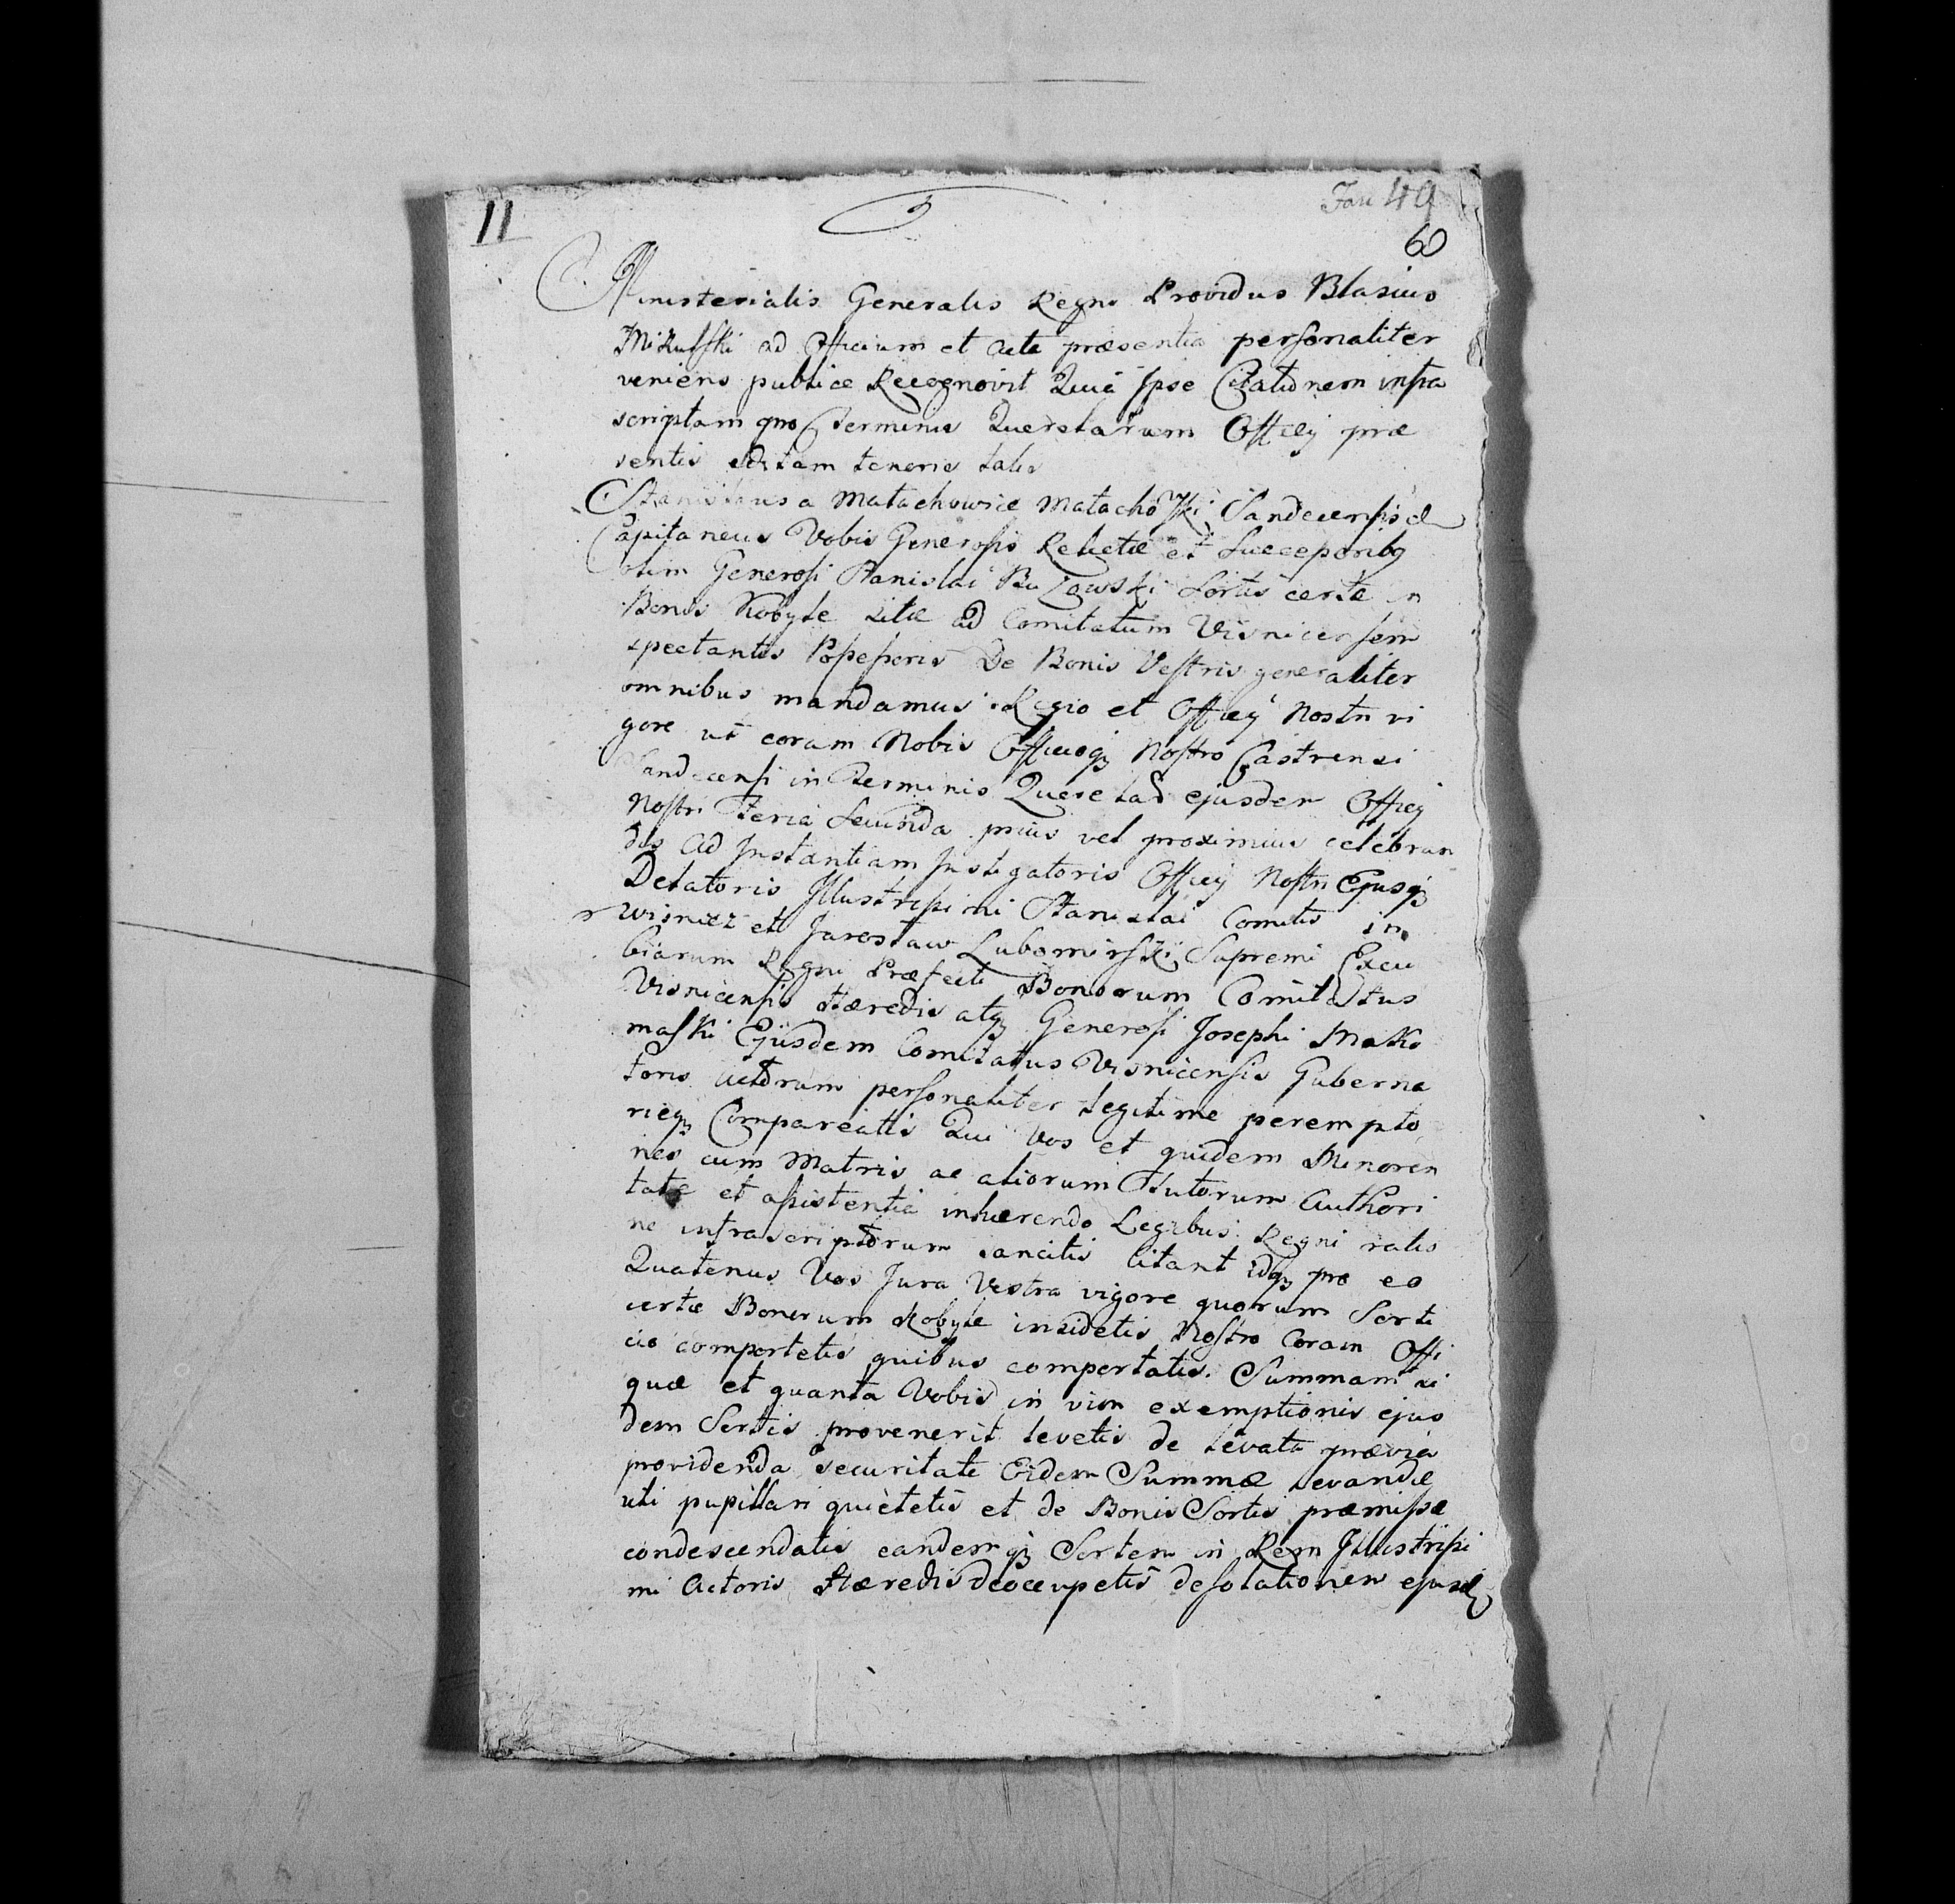 11
49
60
Ministerialis Generalis Regni Providus Blasius
Mikulski ad Officium et Acta præsentia personaliter
veniens publice Recognovit Quia Ipse Citationem infra
scriptam pro Terminis Querelarum Officij præ
sentis editam tenoris talis
Stanislaus a Małachowice Małachoski Sandecensis &
Capitaneus Vobis Generosis Relictæ et Successoribq
olim Generosi Stanislai Sortis certæ in
Bonis Kobyle sitæ ad Comitatum Visnicensem
spectantis Possessoris De Bonis Vestris generaliter
omnibus mandamus Regio et Officij Nostri vi
gore ut coram Nobis Officioq Nostro Castrensi
Sandecensi in Terminis Querelar ejusdem Officij
Nostri Feria Secunda prius vel proximius celebran
dis Ad Instantiam Instigatoris Officij Nostri Ejusq
Delatoris Illustrissimi Stanislai Comitis in
Wisnicz et Jarosław Lubomirski Supremi Excu
biarum Regni Præfecti Bonorum Comitatus
Visnicensis Hæredis atq Generosi Josephi Mako
maski Ejusdem Comitatus Visnicensis Guberna
toris Actorum personaliter legitime perempto
rieq Compareatis Qui Vos et quidem Minoren
nes cum Matris ac aliorum Tutorum Authori
tate et assistentia inhærendo Legibus Regni ratio
ne infrascriptorum sancitis Citant idq pro eo
Quatenus Vos Jura Vestra vigore quorum Sorti
certæ Bonorum Kobyle insidetis Nostro Coram Offi
cio comportetis quibus comportatis Summam si
quæ et quanta Vobis in vim exemptionis ejus
dem Sortis provenerit levetis de levata prævia
providenda securitate Eidem Summæ levandæ
uti pupillari quietetis et de Bonis Sortis præmissæ
condescendatis eandemq Sortem in Rem Illustrissi
mi Actoris Hæredis deoccupetis desolationem ejusd